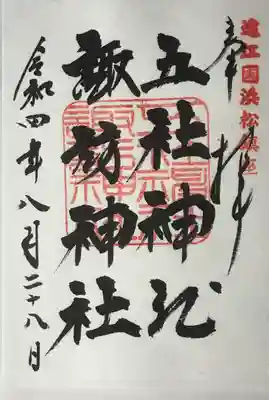 遠江国浜松鎮座
奉拝
五社神社
諏訪神社
令和四年八月二十八日